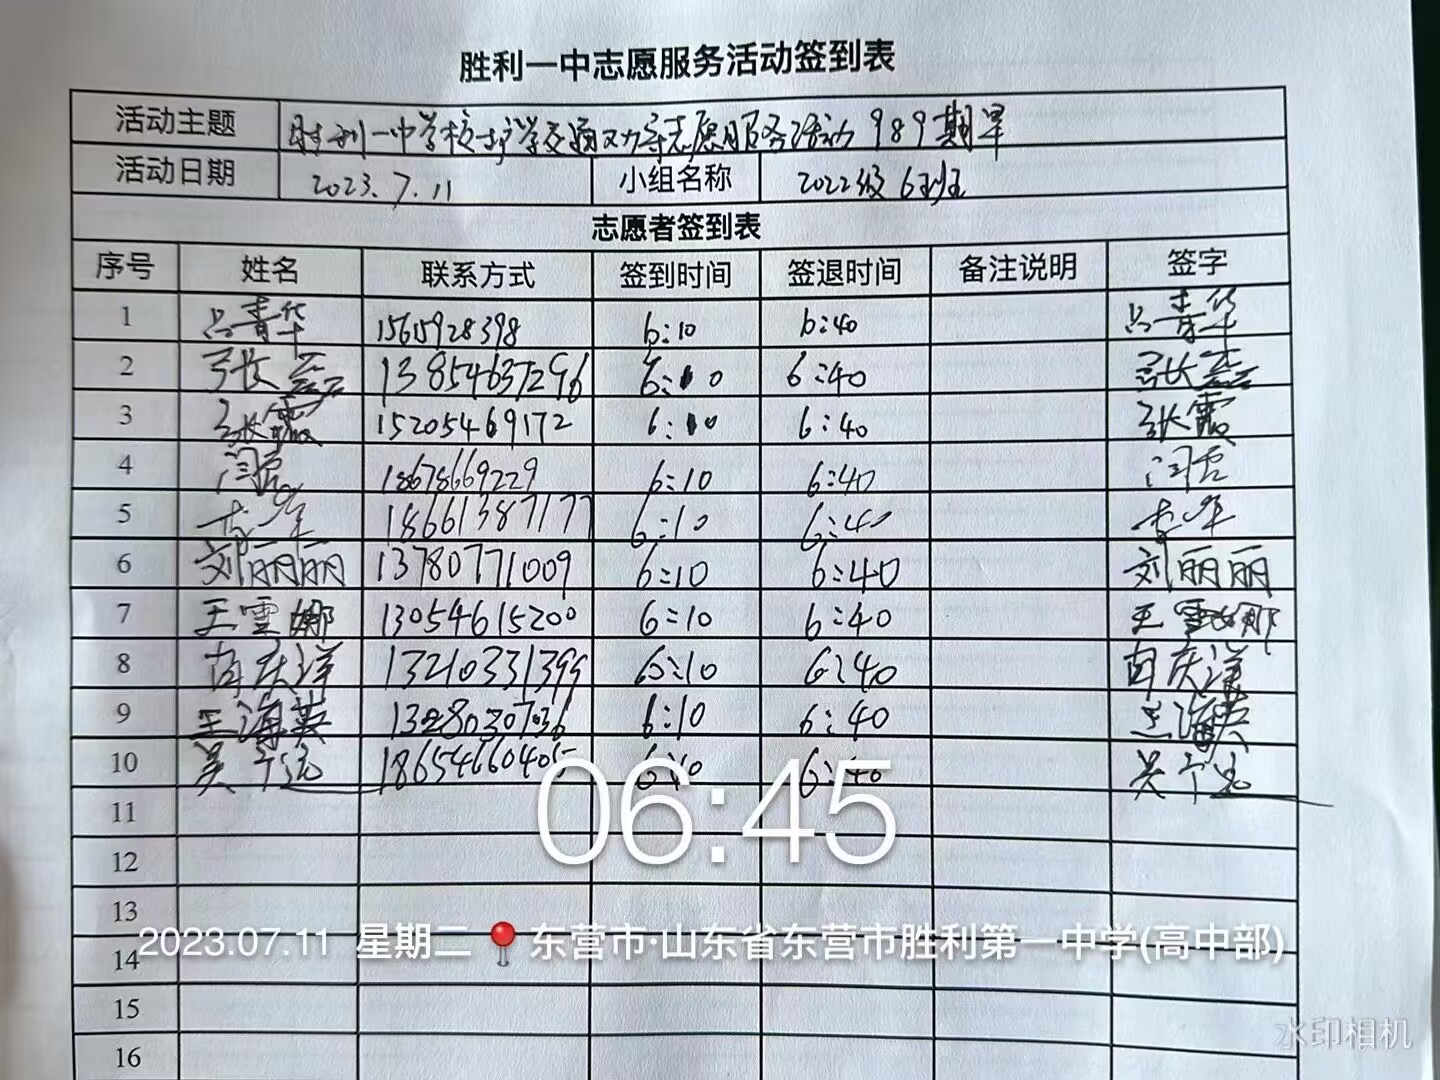 胜利一中志愿服务活动签到表
活动主题 胜利一中学校护学交通劝导志愿服务活动 989期早
活动日期 2023.7.11 小组名称 2022级6班
志愿者签到表
序号 姓名 联系方式 签到时间 签退时间 备注说明 签字
1 吕青华 1561928398 6:10 6:40 吕青华
2 张磊 13854637296 6:10 6:40 张磊
3 张霞 15205469172 6:10 6:40 张霞
4 18678669229 6:10 6:40
5 18661387177 6:10 6:40
6 刘丽丽 13780771009 6:10 6:40 刘丽丽
7 王雪娜 13054615200 6:10 6:40 王雪娜
8 13210331399 6:10 6:40
9 王海英 13280307036 6:10 6:40 王海英
10 18654660405 6:10 6:40
11
06:45
12
13
2023.07.11 星期二 东营市·山东省东营市胜利第一中学(高中部)
14
15
16
水印相机